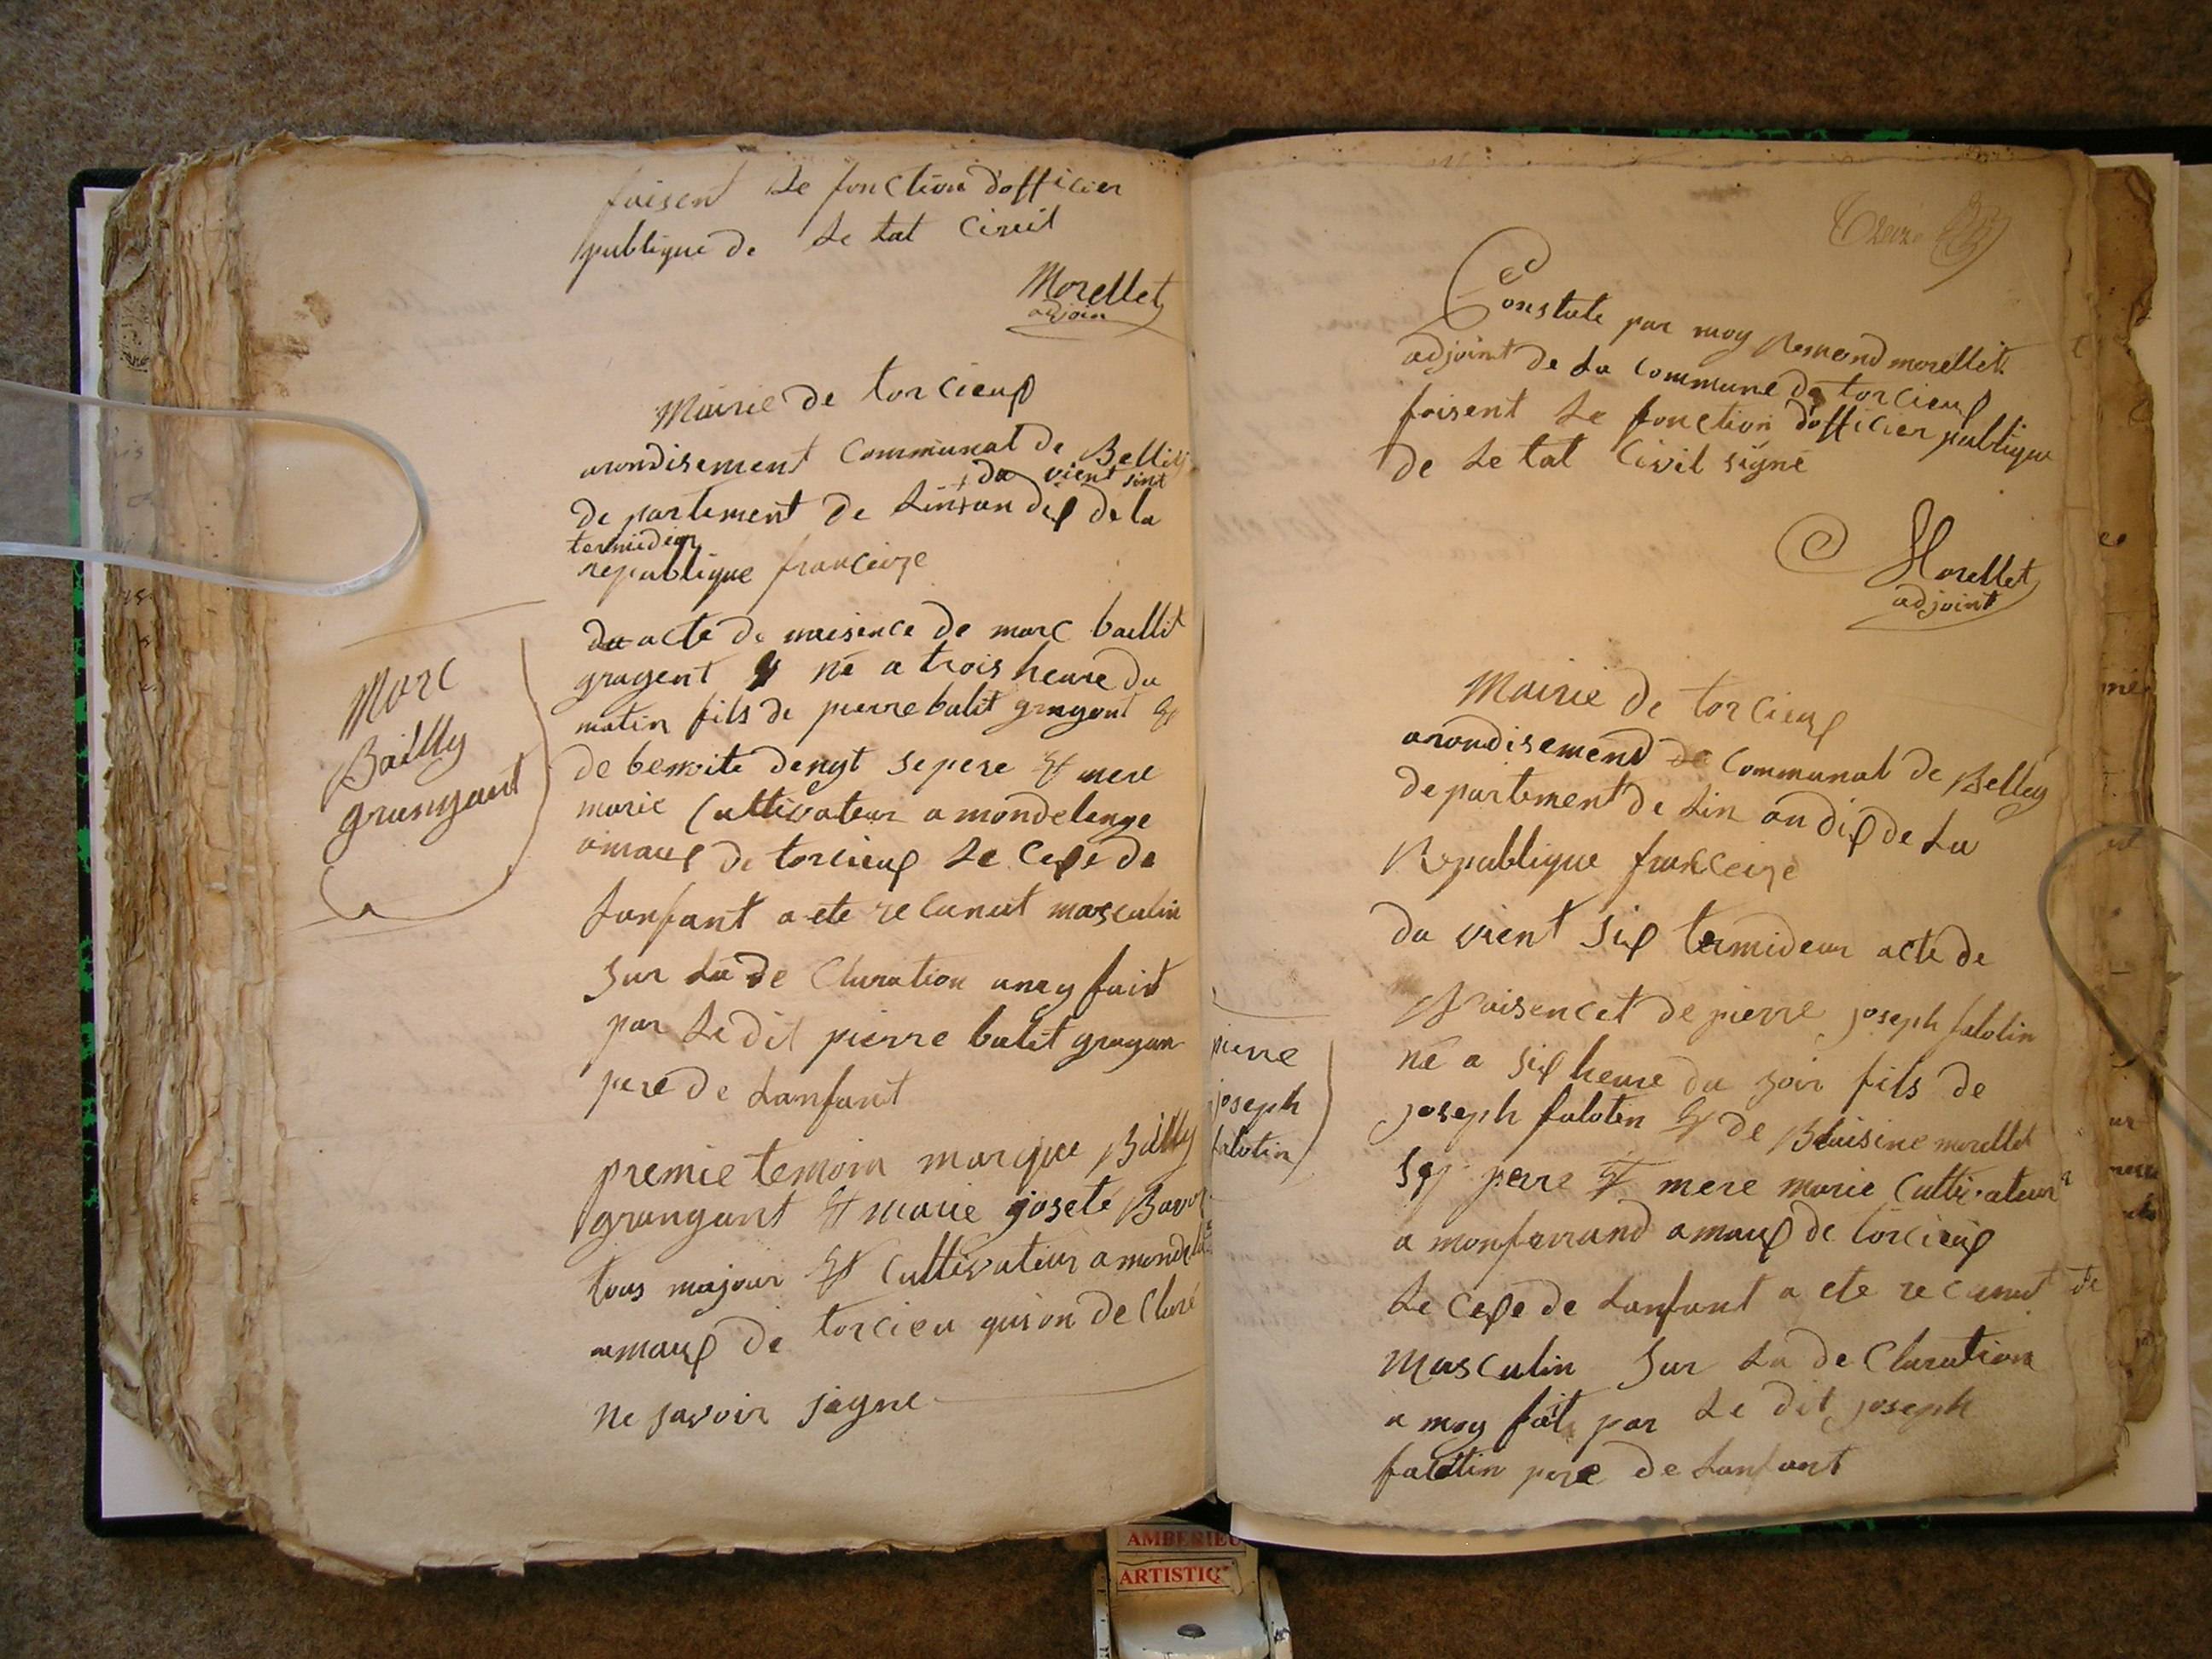 faisent Le fonction d'officier
publique de Le tat Civil
Morellet
adjoin
Mairie de torcieux
arondisement Communal de Belley
+ du vient sint
de partement de Lin + an dix de la
termideur
republique francieze
Marc
Bailly
grangant
du acte de naisence de marc baillit
gragent né a trois heure du
matin fils de pierre balit gragant et
de benoite denyt se pere et mere
marie Cultivateur a mondelange
amaux de torcieux Le cexe de
Lanfant a ete recunut masculin
Sur La de Claration a moy fait
par Le dit pierre balit gragan
pere de Lanfant
premie temoin marque Bailly
grangant et marie josete
tous majour et Cultivateur a
amaux de torcieu qui on de Claré
ne savoir signe
Treize
Constate par moy Remond morellet
adjoint de La commune de torcieux
faisent Le fonction d'officier publique
de Le tat Civil signé
Morellet
adjoint
Mairie de torcieux
arondisement de Communal de Belley
departement de Lin an dix de La
Republique franceize
du vient six termideur acte de
pierre
joseph
falotin
Naisencet de pierre joseph falotin
né a six heure du soir fils de
joseph falotin et de Blaisine morellet
Sey pere et mere marie Cultivateur
a monferrand amaux de torcieux
Le Cexe de Lanfant a ete recunut de
masculin Sur La de Claration
a moy fait par Le dit joseph
falotin pere de Lanfant
AMBERIEU
ARTISTIQ